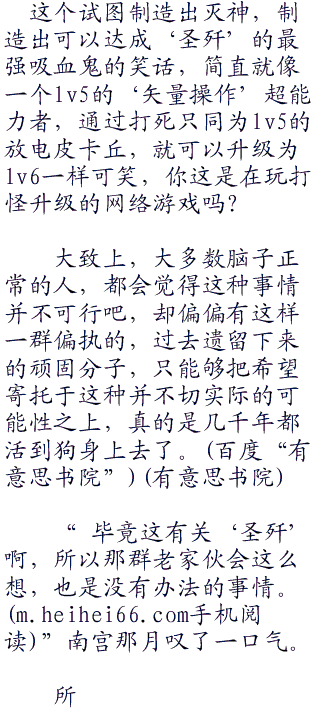 这个试图制造出灭神，制
造出可以达成‘圣歼’的最
强吸血鬼的笑话，简直就像
一个lv5的‘矢量操作’超能
力者，通过打死只同为lv5的
放电皮卡丘，就可以升级为
lv6一样可笑，你这是在玩打
怪升级的网络游戏吗？
大致上，大多数脑子正
常的人，都会觉得这种事情
并不可行吧，却偏偏有这样
一群偏执的，过去遗留下来
的顽固分子，只能够把希望
寄托于这种并不切实际的可
能性之上，真的是几千年都
活到狗身上去了。(百度“有
意思书院”)(有意思书院)
“毕竟这有关‘圣歼’
啊，所以那群老家伙会这么
想，也是没有办法的事情。
(m.heihei66.com手机阅
读)”南宫那月叹了一口气。
所